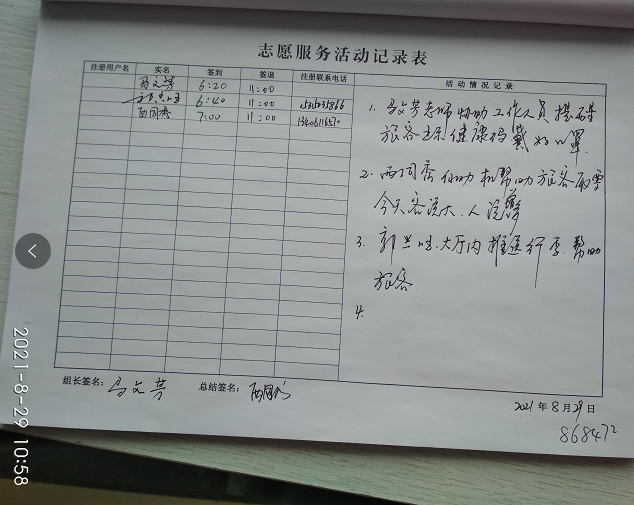 志愿服务活动记录表
注册用户名 实名 签到 签退 注册联系电话 活动情况记录
马文芳 6:20 11:00
6:40 11:00
西同秀 7:00 11:00
1. 马文芳老师协助工作人员提醒
旅客出示健康码戴好口罩.
2. 西同秀 自助机帮助旅客取票
今天客流大.人流
3. 郭 大厅内推送行李.帮助
旅客
4.
组长签名: 马文芳 总结签名:
2021年8月29日
868472
2021-8-29 10:58